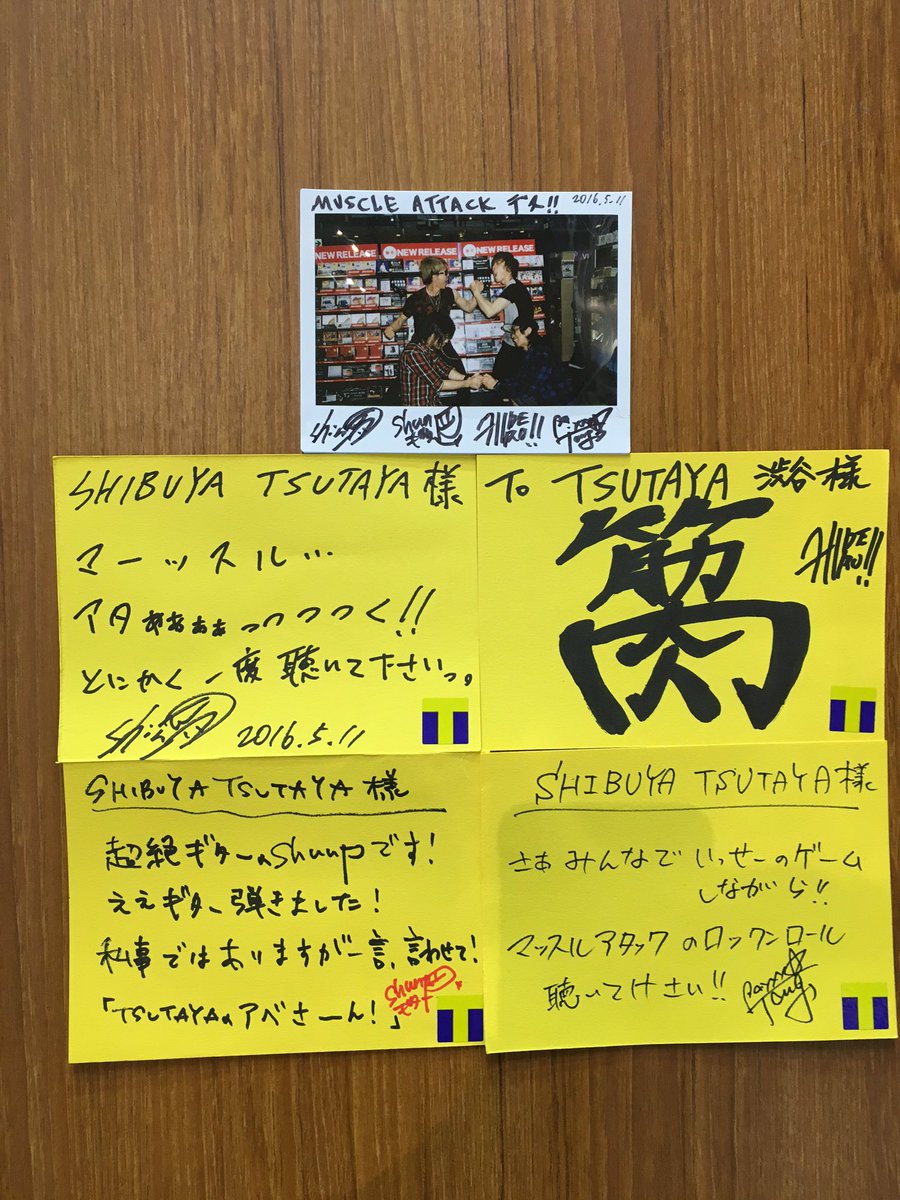 MUSCLE ATTACK デス!! 2016.5.11
NEW RELEASE NEW RELEASE NEW RELEASE
Shun
SHIBUYA TSUTAYA 様
マーッスル…
アタぁぁぁぁっっっっく!!
とにかく一度聴いて下さいっ。
2016.5.11
TO TSUTAYA 渋谷様
筋肉
SHIBUYA TSUTAYA 様
超絶ギターのshunpです!
ええギター弾きました!
私事ではありますが一言、言わせて!
「TSUTAYAのアベさーん!」
SHIBUYA TSUTAYA様
さぁ みんなで いっせーのゲーム
しながら!!
マッスルアタックのロックンロール
聴いてけさい!!